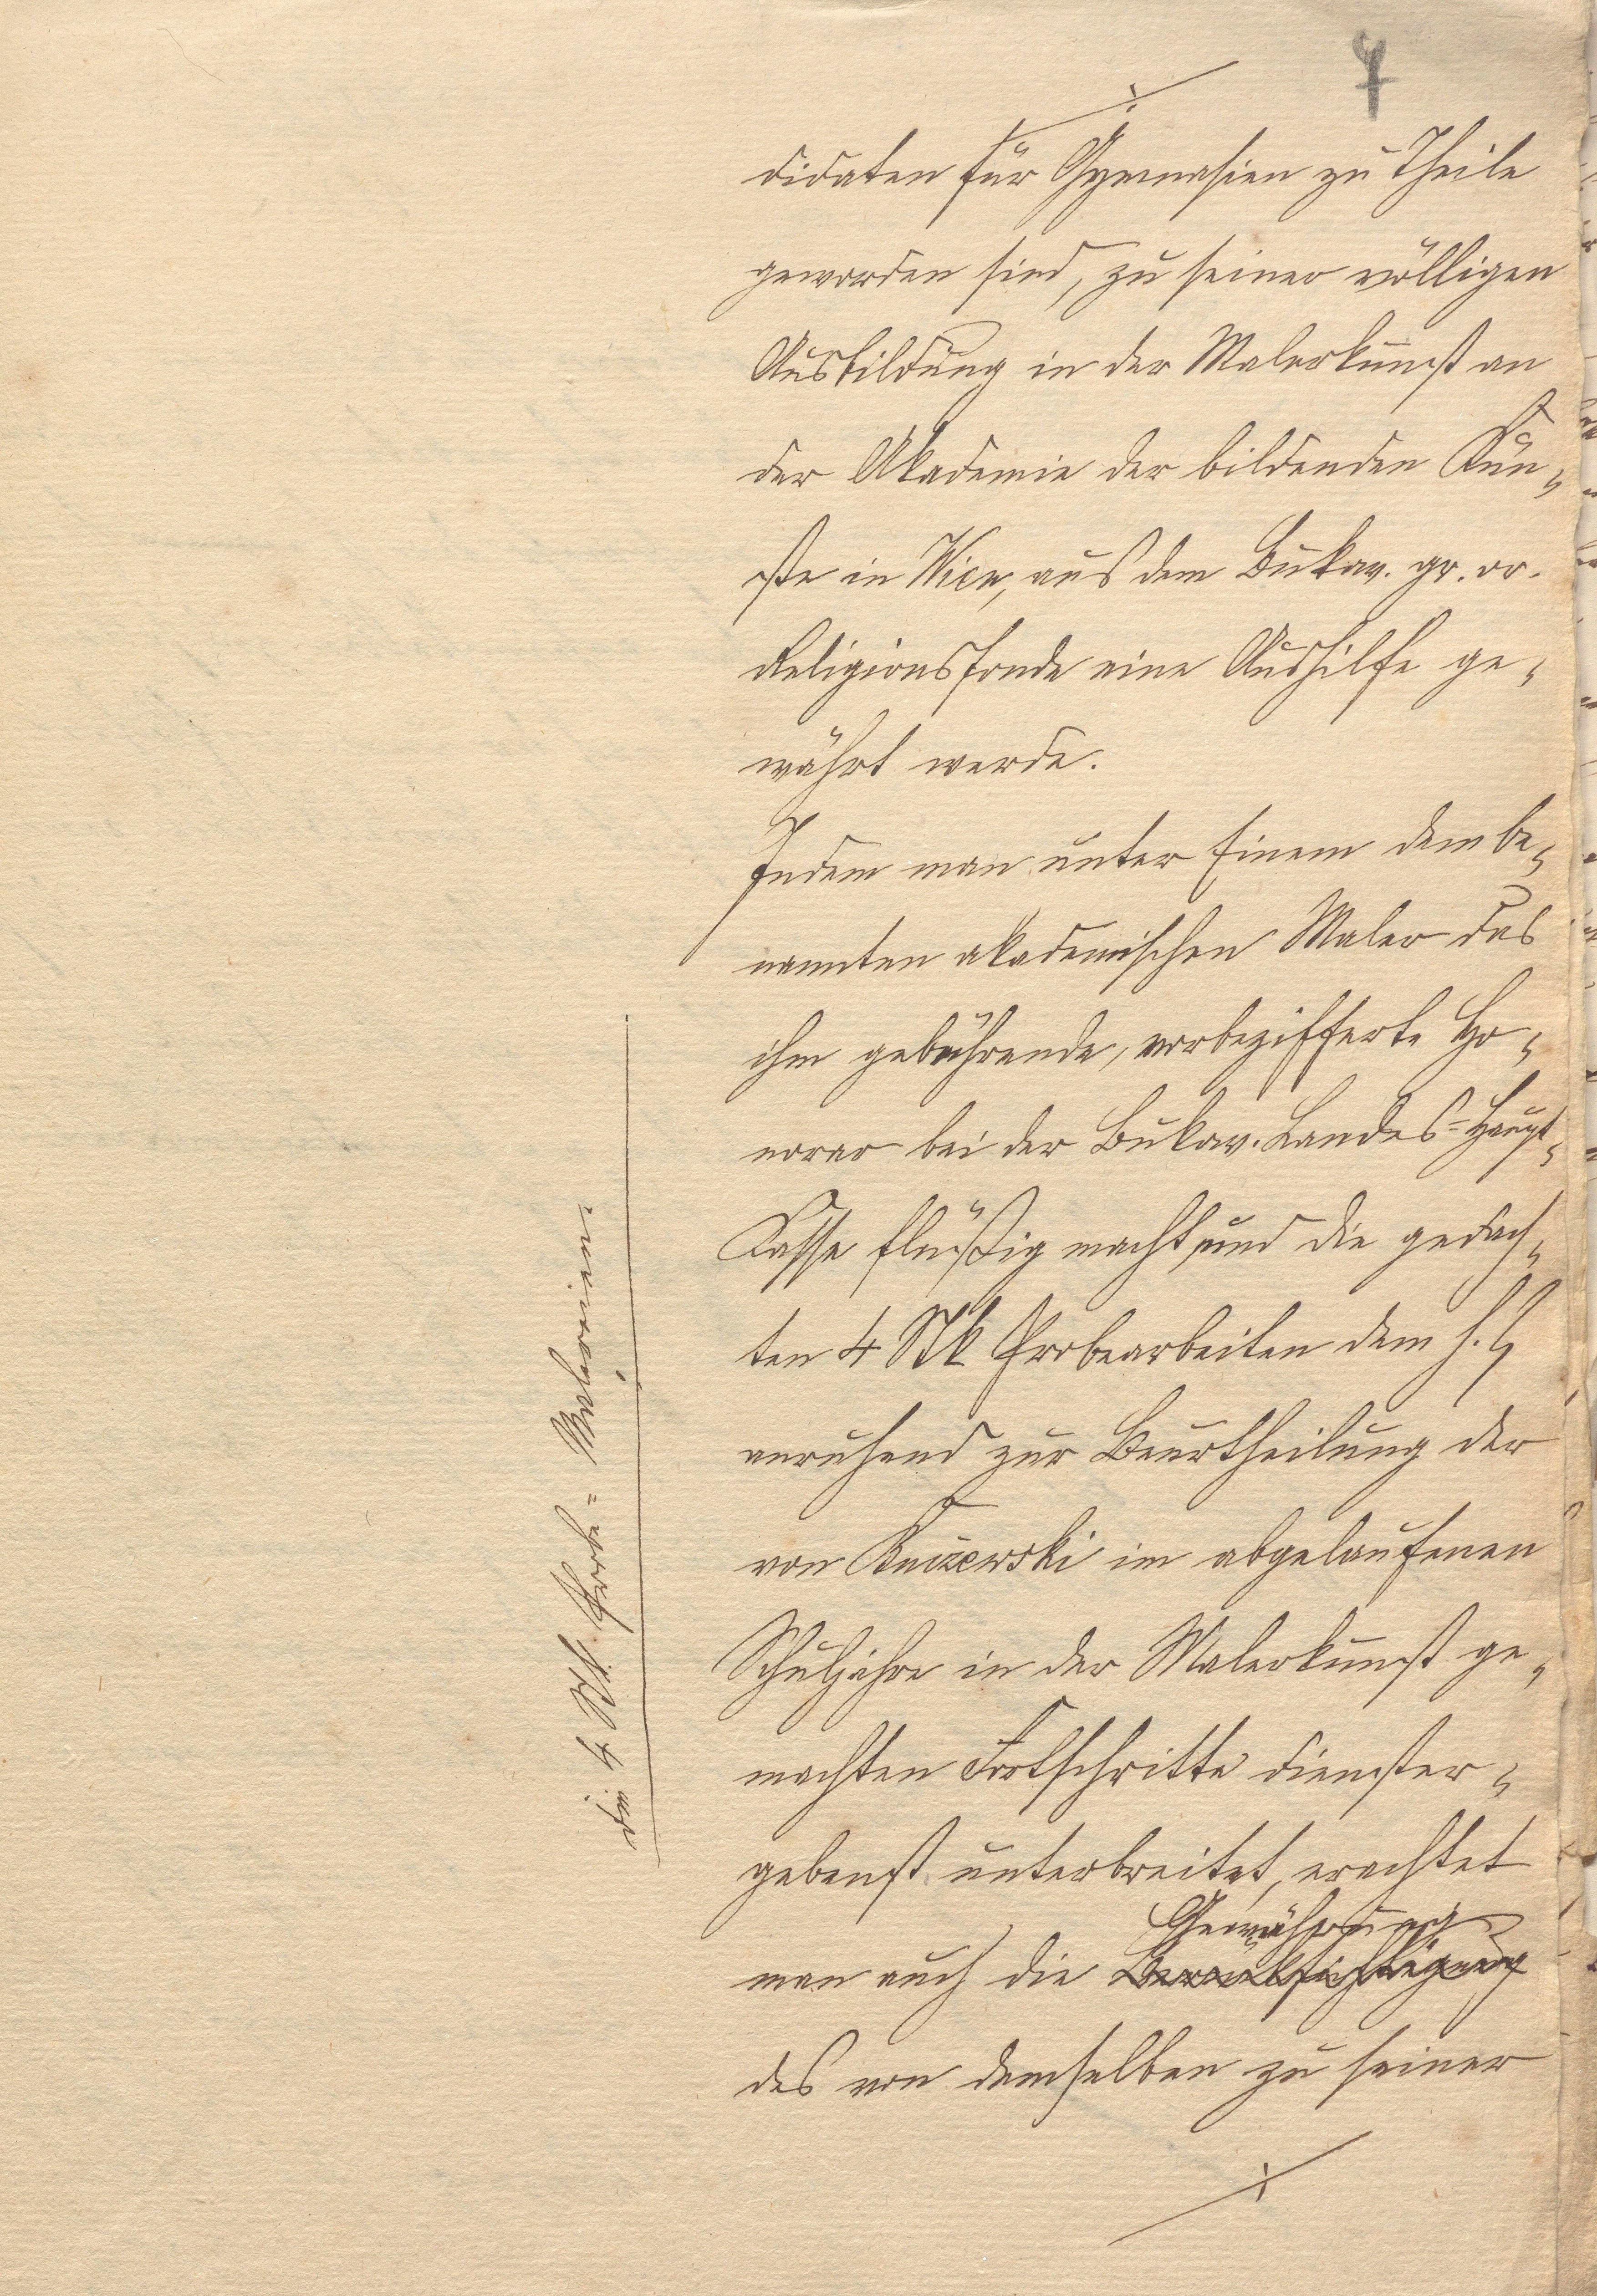 7
didaten für Gymnasien zu Theile
geworden sind, zu seiner völligen
Ausbildung in der Malerkunst an
der Akademie der bildenden Kün-
ste in Wien, aus dem Bukow. gr. or.
Religionsfonde eine Aushilfe ge-
währt werde.
Indem man unter Einem dem be-
nannten akademischen Maler das
ihm gebührende, vorbezifferte Ho-
norar bei der Bukow. Landes-Haupt-
Kasse flüßig macht, und die gedach-
ten 4 Stk Probearbeiten dem h.
anruhend zur Beurtheilung der
von Knizewski im abgelaufenen
Schuljahre in der Malerkunst ge-
machten Fortschritte dienster-
gebenst unterbreitet, erachtet
Gewährung
man auch die Berücksichtigung
des von demselben zu seiner
die 4 Stk. Probe-Malereien